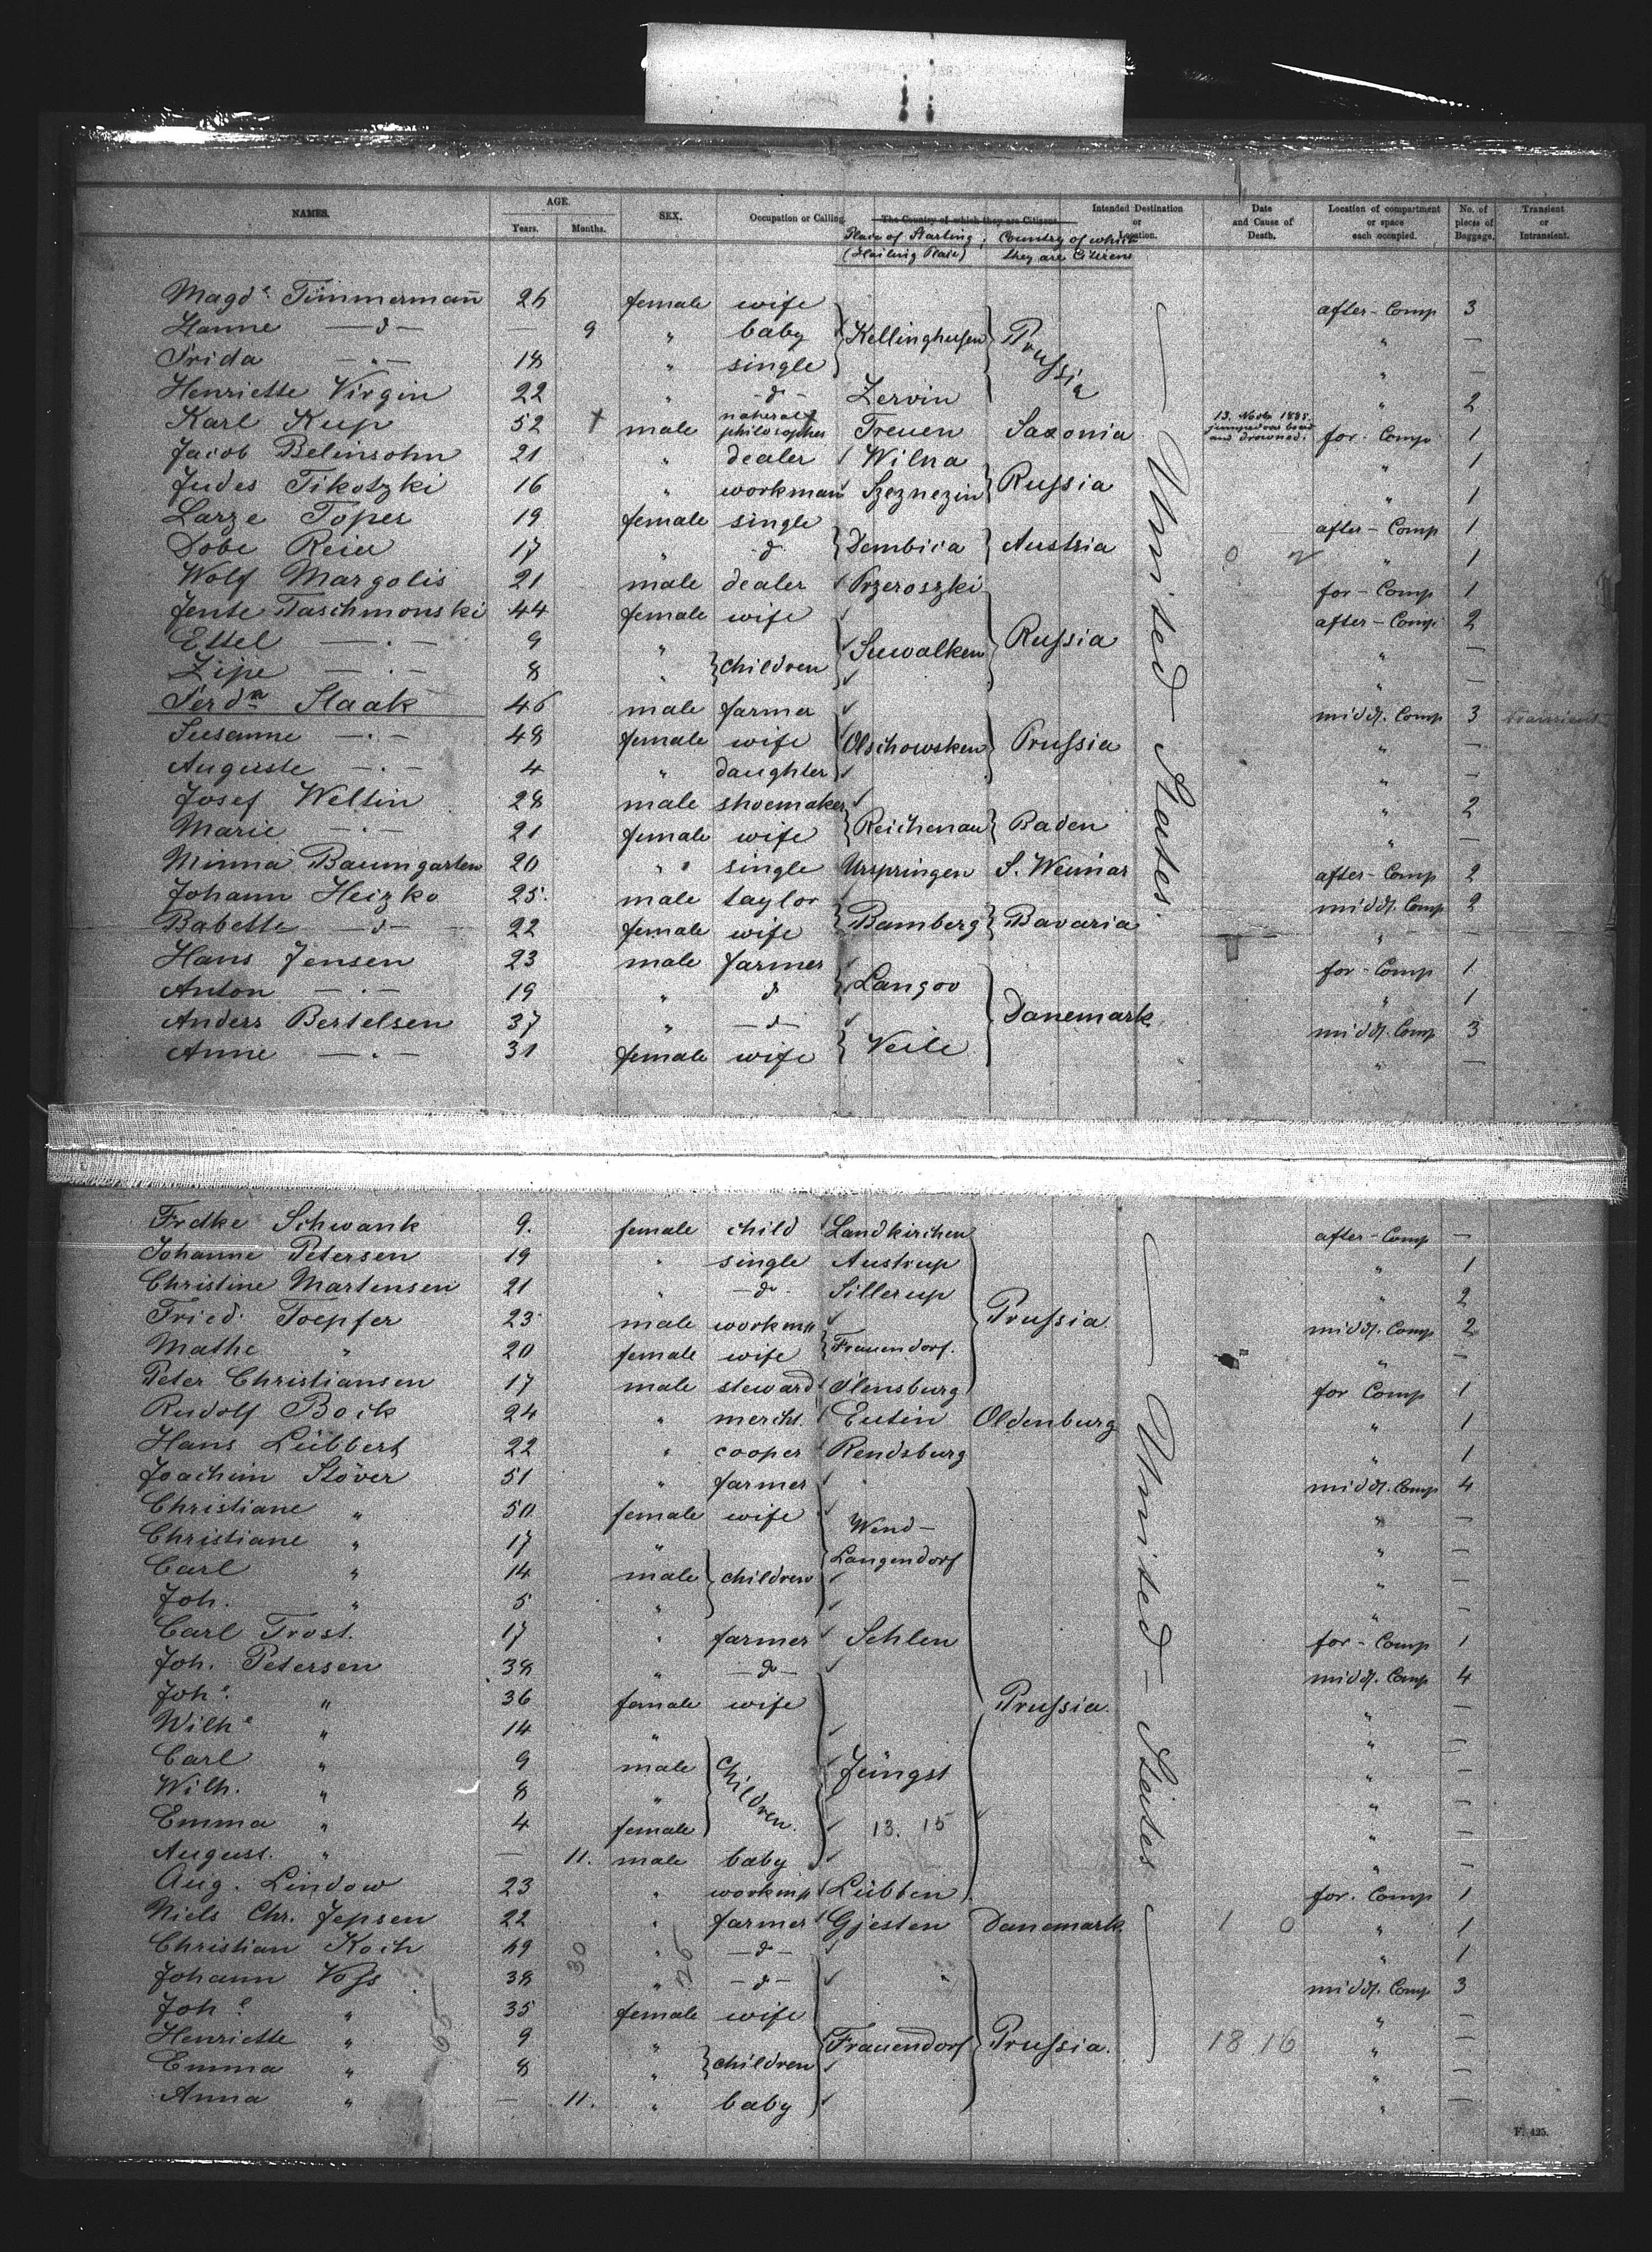 NAMES. AGE. SEX. Occupation or Calling. The Country of which they are Citizens. Intended Destination or Location. Date and Cause of Death. Location of compartment or space each occupied. No. of pieces of Baggage. Transient or Intransient.
Years. Months. Place of Starting; (Hailing Place) Country of which they are Citizens
Magd.e Timmermañ 26 female wife after-Comp 3
Hanne —d— — 9 " baby Kellinghusen Prussia " —
Frida —"— 18 " single " —
Henriette Virgin 22 " -d- Zervin " 2
Karl Kup 52 male natural philosopher Treuen Saxonia 13. Novbr 1885. jumped over board and drowned. for-Comp 1
Jacob Belinsohn 21 " dealer Wilna " 1
Judes Tikotzki 16 " workman Szeznezin Russia " 1
Larze Töper 19 female single after-Comp 1
Dobe Reier 17 " d Dembica Austria " 1
Wolf Margolis 21 male dealer Przeroszki for-Comp 1
Jente Taschmonski 44 female wife after-Comp 2
Ettel —"— 9 " children Suwalken Russia " —
Zipe —"— 8 " " —
Ferdn Staak 46 male farmer middl. Comp 3 Transient
Susanne —"— 48 female wife Olschowsken Prussia " —
Auguste —"— 4 " daughter " —
Josef Weltin 28 male shoemaker " 2
Marie —"— 21 female wife Reichenau Baden " —
Minna Baumgarten 20 " single Urspringen S. Weimar after-Comp 2
Johann Heizko 25 male taylor middl. Comp 2
Babette —d— 22 female wife Bamberg Bavaria " —
Hans Jensen 23 male farmer for-Comp 1
Anton —"— 19 " d Langoo " 1
Anders Bertelsen 37 " —d— Danemark middl. Comp 3
Anne —"— 31 female wife Veile " —
— United States.
Frdke Schwank 9. female child Landkirchen after-Comp —
Johanne Petersen 19 " single Austrup " 1
Christine Martensen 21 " —d— Sillerup " 2
Fried. Toepfer 23 male workmn Prussia middl. Comp 2
Mathe " 20 female wife Frauendorf. " —
Peter Christiansen 17 male steward Flensburg for Comp 1
Rudolf Bock 24 " mercht. Eutin Oldenburg " 1
Hans Lübbert 22 " cooper Rendsburg " 1
Joachim Stöver 51 " farmer middl. Comp 4
Christiane " 50 female wife Wend- " —
Christiane " 17 " Langendorf " —
Carl " 14 male children " —
Joh. " 5 " " —
Carl Trost. 17 " farmer Sehlen for-Comp 1
Joh. Petersen 38 " —d— middl. Comp 4
Joh.e " 36 female wife Prussia. " —
Wilh.e " 14 " " —
Carl " 9 male children. Jüngst " —
Wilh. " 8 " " —
Emma " 4 female 13. 15 " —
August. " — 11. male baby " —
Aug. Lindow 23 " workmn Lübben for. Comp 1
Niels Chr. Jepsen 22 " farmer Gjesten Danemark 1 0 " 1
Christian Koch 49 30 " 26 —d— " 1
Johann Voss 38 " —d— middl. Comp 3
Joh.e " 35 female wife " —
Henriette " 9 " children Frauendorf Prussia. 18 16 " —
Emma " 8 " " —
Anna " — 11. " baby " —
— United-States —
F. 425.